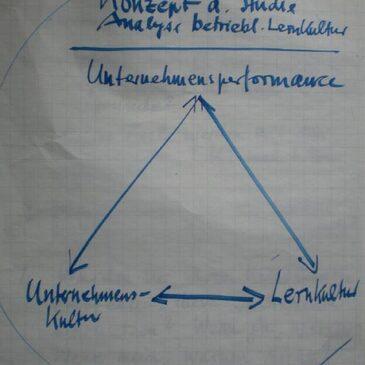 Konzept d. Studie
Analyse betriebl. Lernkultur
Unternehmensperformance
Unternehmens-
Kultur
Lernkultur